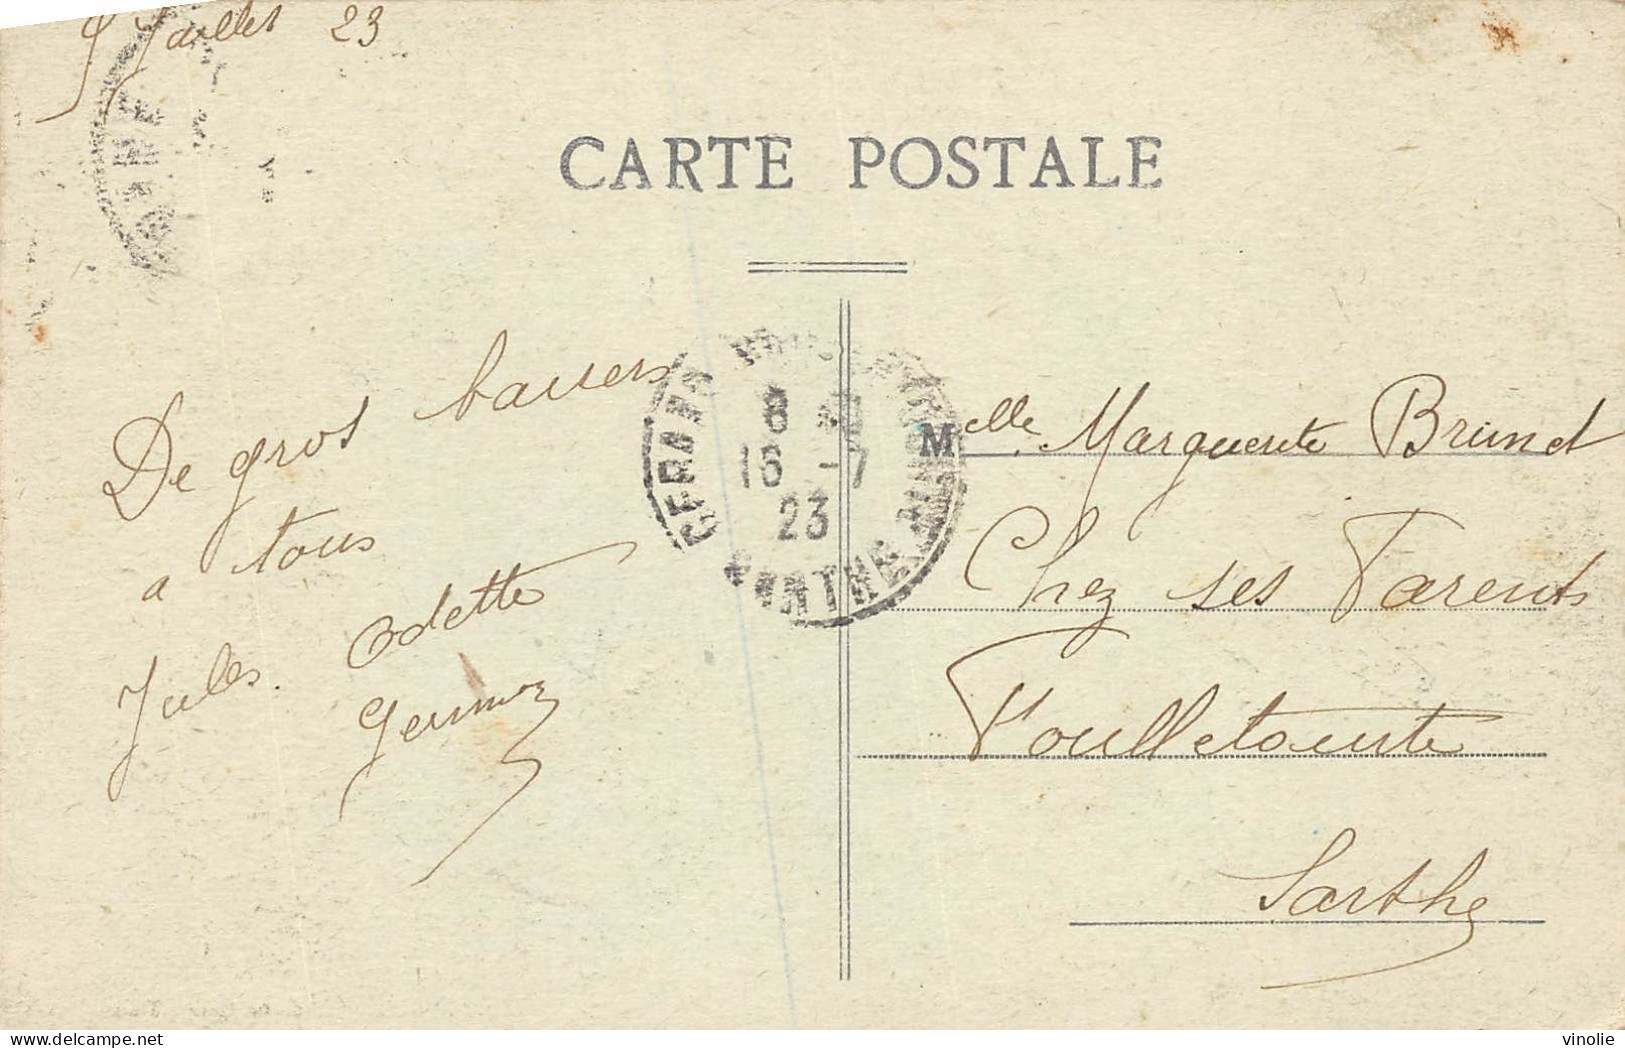 Juillet 23
CARTE POSTALE
De gros baisers
a tous
Jules. Odette
8
16 -7
23
SARTHE
Melle. Marguerite Brunet
Chez ses Parents
Foulletourte
Sarthe
vinolie